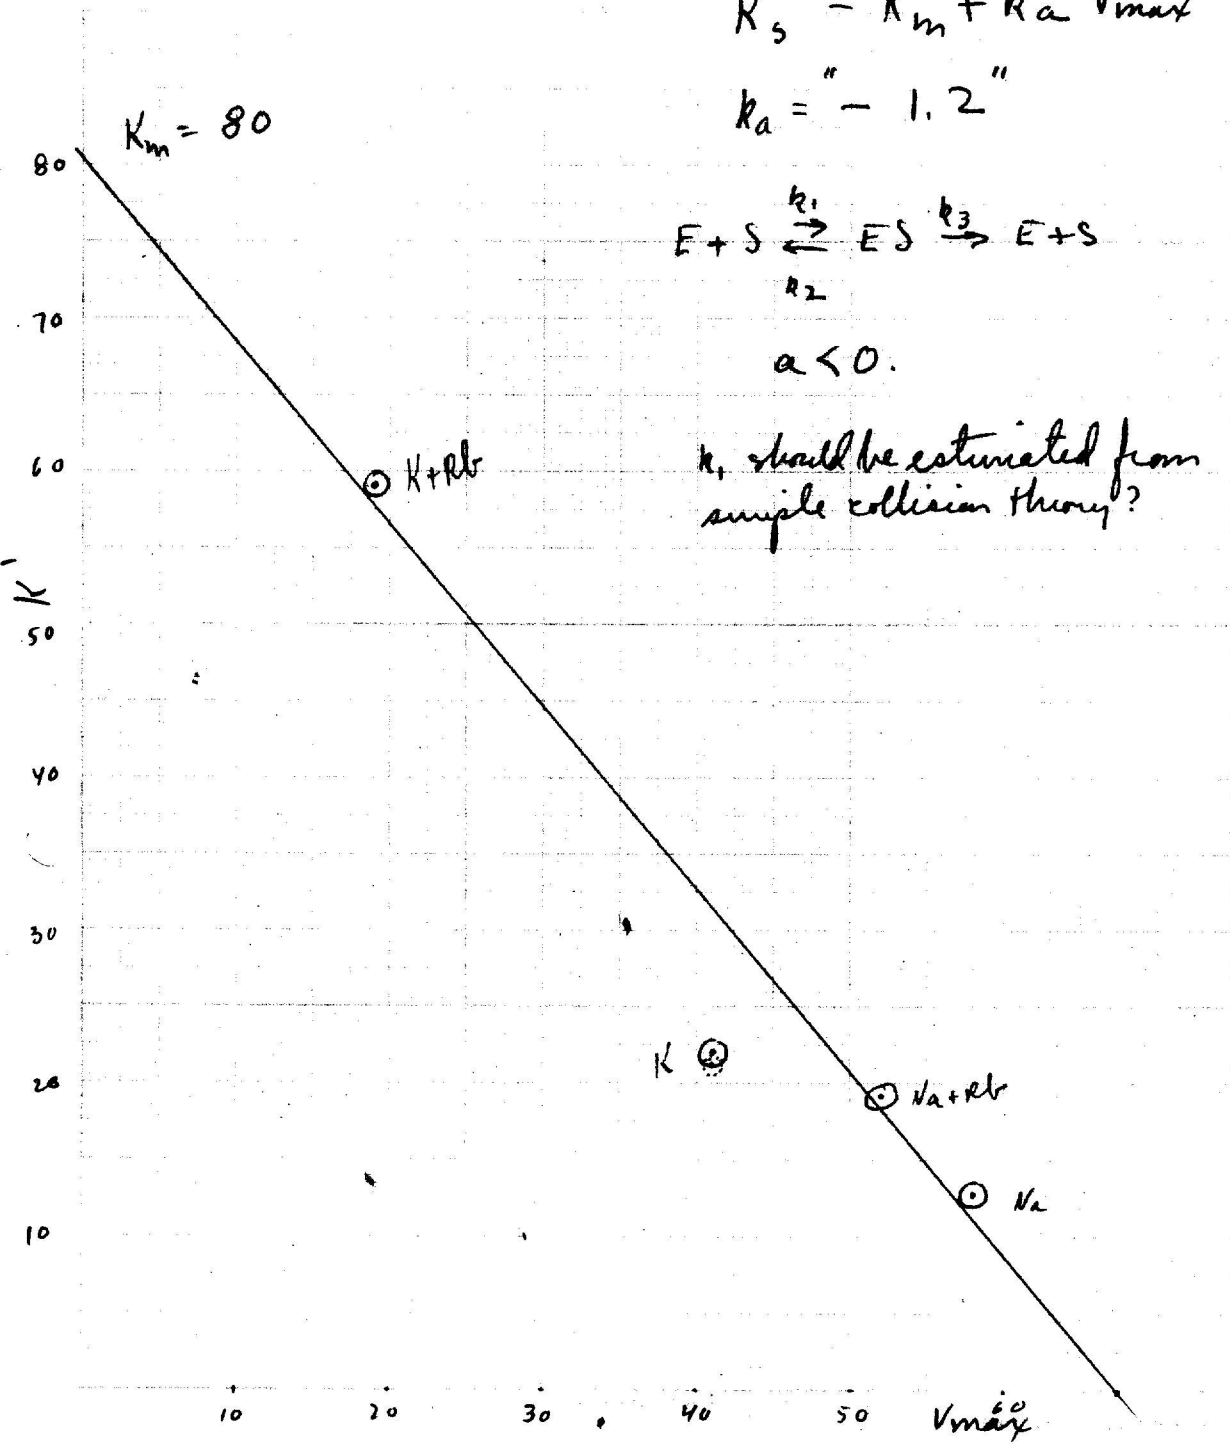 Ks = Km + Ra Vmax
Km = 80
ka = "- 1.2"
E + S ⇌ ES → E + S
k1
k3
k2
a < 0.
k1 should be estimated from
simple collision theory?
K'
80
70
60
50
40
30
20
10
K+Rb
K
Na+Rb
Na
10 20 30 40 50 60
Vmax